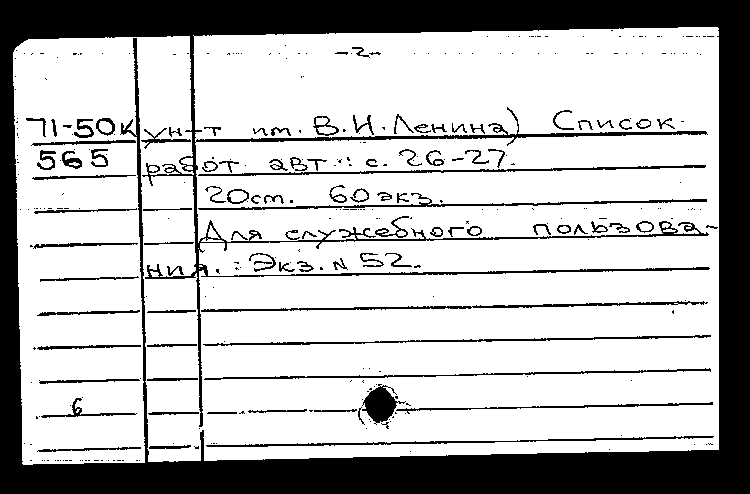 -2-
71-50к ун-т им. В.И.Ленина) Список
565 работ авт.: с. 26-27.
20см. 60экз.
Для служебного пользова-
ния. : Экз. N 52.
6